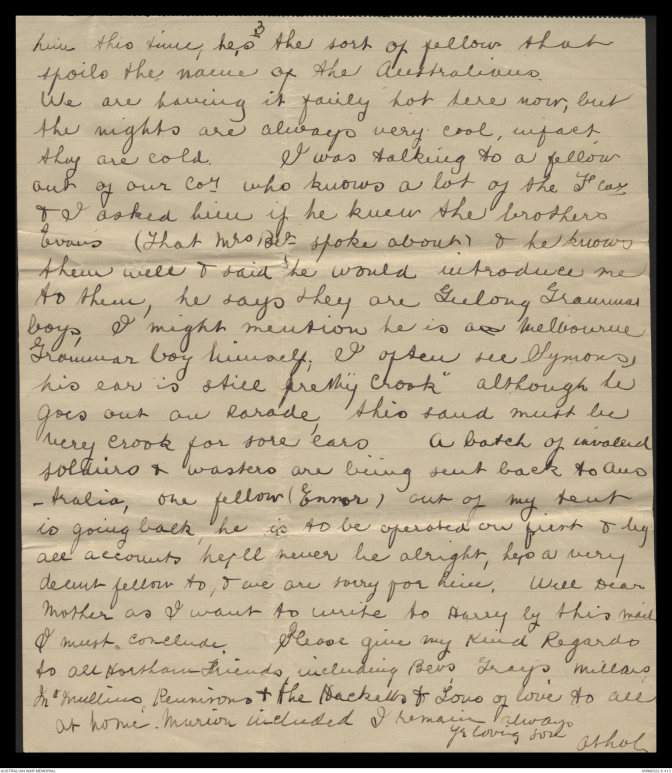 3
him this time, he's the sort of fellow that
spoils the name of the Australians.
We are having it fairly hot here now, but
the nights are always very cool, infact
they are cold. I was talking to a fellow
out of our Coy. who knows a lot of the F Coy
& I asked him if he knew the brothers
Evans (that Mrs spoke about) & he knows
them well & said he would introduce me
to them, he says they are Geelong Grammar
boys, I might mention he is a Melbourne
Grammar boy himself. I often see Symons,
his ear is still pretty "crook" although he
goes out on parade, this sand must be
very crook for sore ears A batch of invalid
soldiers & wasters are being sent back to Aus
-tralia, one fellow (Ennor) out of my tent
is going back, he is to be operated on first & by
all accounts he'll never be alright, he's a very
decent fellow to, & we are sorry for him. Well Dear
Mother as I want to write to Harry by this mail
I must conclude. Please give my Kind Regards
to all Horsham Friends, including Bevs, Grays, Millars
Mullins, & the Hacketts & Lons of love to all
at home. Marion included I remain always
Yr loving son
Athol
AUSTRALIAN WAR MEMORIAL